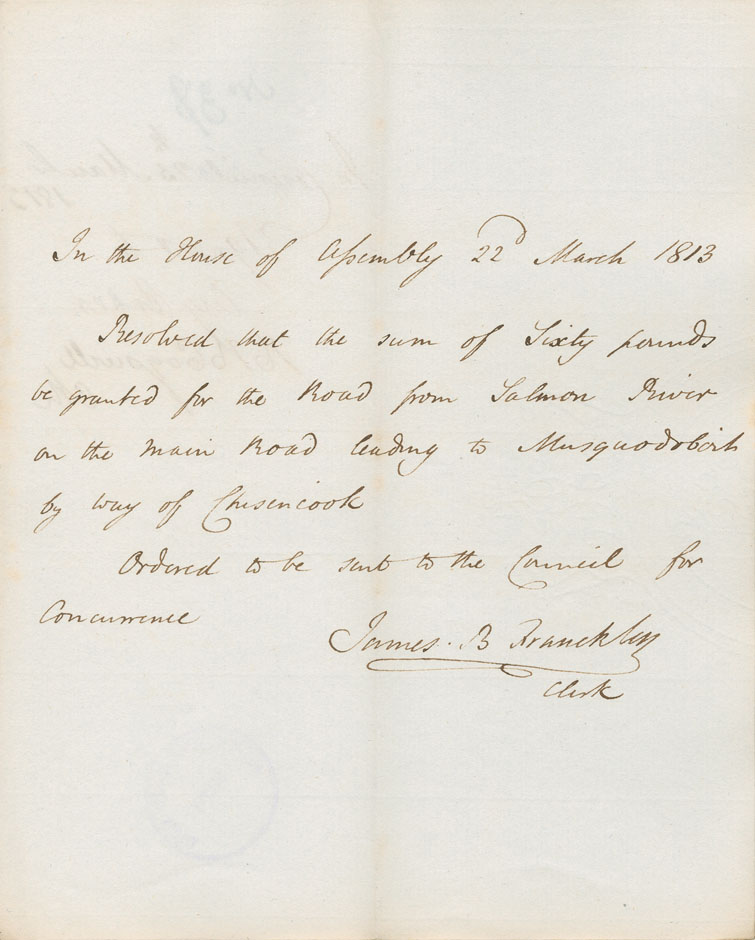 In the House of Assembly 22d March 1813
Resolved that the sum of Sixty pounds
be granted for the Road from Salmon River
on the main Road leading to Musquodoboit
by way of Chisencook
Ordered to be sent to the Council for
Concurrence
James. B Franckleyn
Clerk